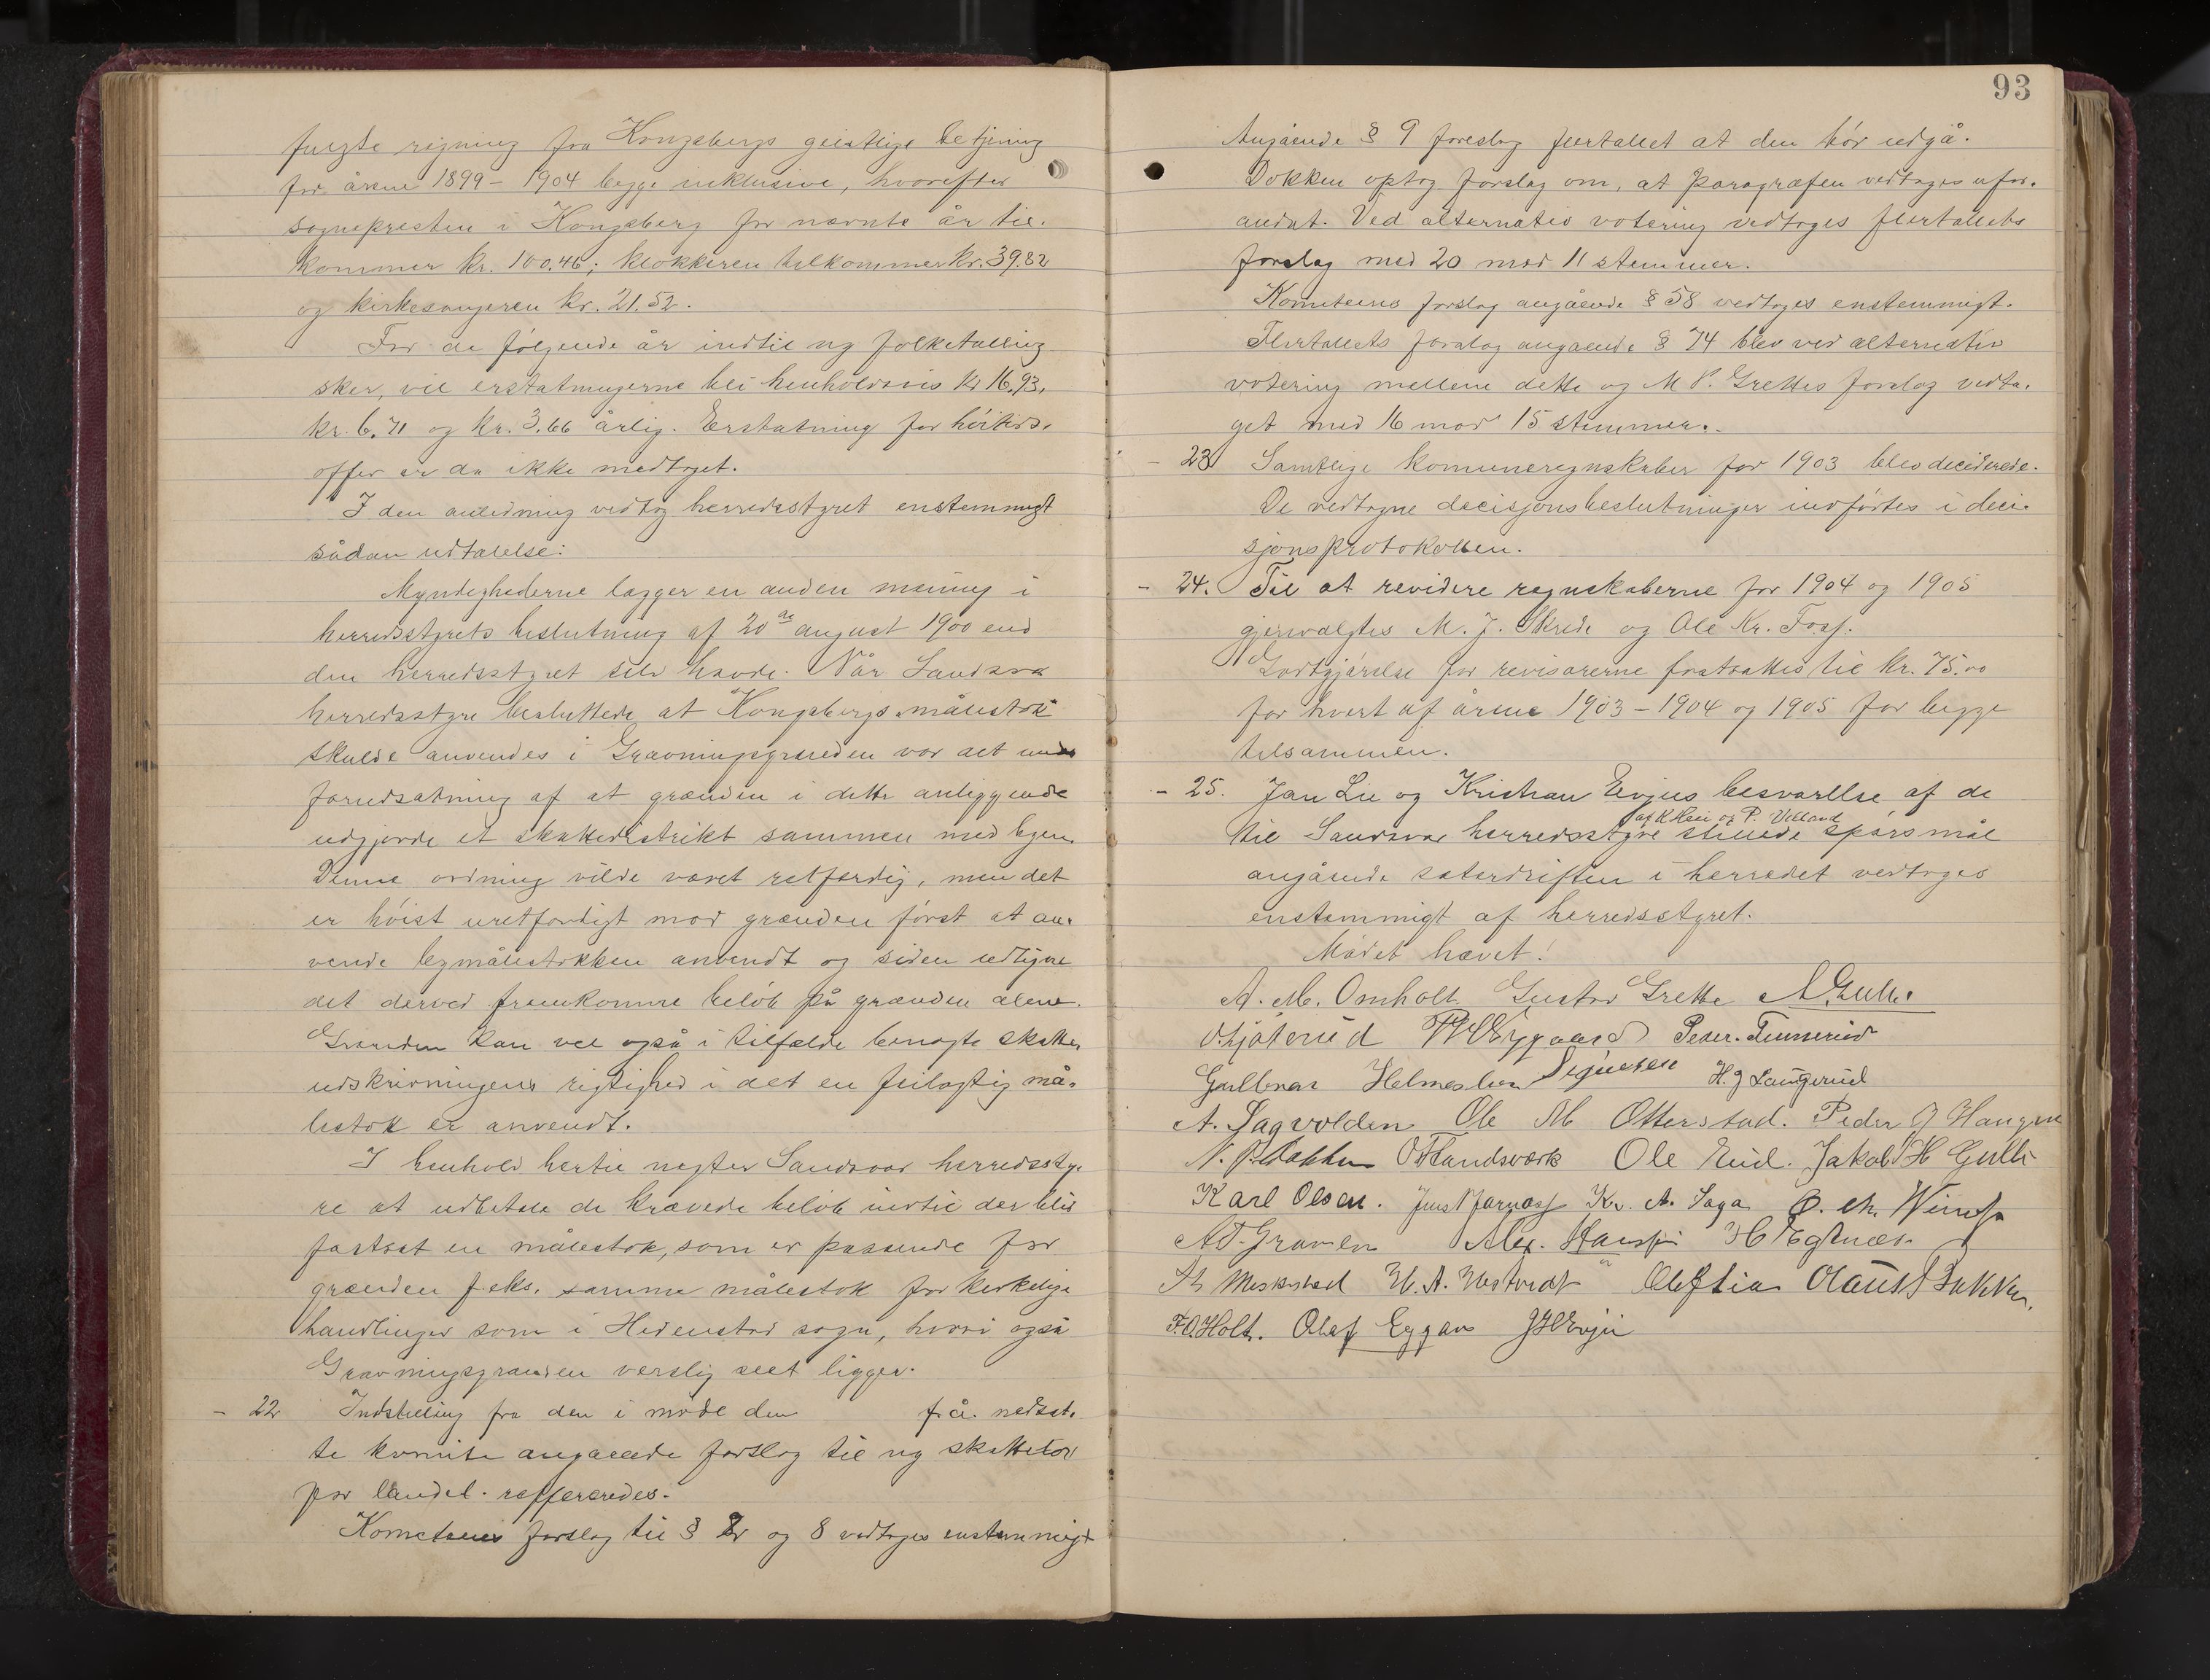 fulgte regning fra Kongsbergs geistlige betjening
for årene 1899 – 1904 begge inklusive, hvorefter
sognepresten i Kongsberg for nævnte år til-
kommer kr. 100,46; klokkeren tilkommer kr. 39.82
og kirkesangeren kr. 21.52.
For de følgende år indtil ny folketælling
sker, vil erstatningerne bli henholdsvis kr 16,93,
kr. 6,71 og kr. 3,66 årlig. Erstatning for høitids-
offer er da ikke medtaget.
I den anledning vedtog herredsstyret enstemmigt
sådan udtalelse:
Myndighederne lægger en anden mening i
herredsstyrets beslutning af 20de august 1900 end
den herredsstyret selv havde. Når Sandsvær
herredsstyre besluttede at Kongsbergs målestok
skulde anvendes i Gravningsgrænden var det under
forudsætning af at grænden i dette anliggende
udgjorde et skattedistrikt sammen med byen.
Denne ordning vilde været retfærdig, men det
er høist uretfærdigt mod grænden først at an-
vende bymålestokken anvendt og siden udligne
det derved fremkomne beløb på grænden alene.
Grænden kan vel også i tilfælde benægte skatte-
udskrivningens rigtighed i det en feilagtig må-
lestok er anvendt.
I henhold hertil negter Sandsvær herredssty-
re at udbetale de krævede beløb indtil der blir
fastsat en målestok, som er passende for
grænden f. eks. samme målestok for kirkelige
handlinger som i Hedenstad sogn, hvori også
Gravningsgrænden verslig seet ligger.
– 22 Indstilling fra den i møde den f. å. nedsat-
te komite angaaende forslag til ny skattelov
for landet refffereredes.
Kometeens forslag til § 2 og 8 vedtoges enstemmigt
93
Angående § 9 foreslog flertallet at den bør udgå.
Dokken optog forslag om, at paragrafen vedtoges ufor-
andret. Ved alternativ votering vedtoges flertallets
forslag med 20 mod 11 stemmer.
Kometeens forslag angående § 58 vedtoges enstemmigt.
Flertallets forslag angaaende § 74 blev ved alternativ
votering mellem dette og M P. Grettes forslag vedta-
get med 16 mod 15 stemmer.
– 23 Samtlige komuneregnskaber for 1903 blev deciderede.
De vedtagne decisjonsbeslutninger indførtes i deci-
sjonsprotokollen.
– 24. Til at revidere regnskaberne for 1904 og 1905
gjenvalgtes M. J. Skrede og Ole Kr. Foss.
Godtgjørelse for revisorerne fastsattes til kr. 75.00
for hvert af årene 1903 – 1904 og 1905 for begge
tilsammen.
– 25. Jan Lie og Kristian Evjus besvarelse af de
af K Hei og P. Velland
til Sandsvær herredsstyre stillede spørsmål
angående sæterdriften i herredet vedtoges
enstemmigt af herredsstyret.
Mødet hævet!
A. M. Omholt Gustav Grette A. Gulli
Skjøterud Byggaard Peder Tinnerud
Gullbrar Helmersen Sigurssen H. J Langerud
A. Lagvolden Ole M Otterstad. Peder J Haugen
N. P. Dokken O Landsværk Ole Eud. Jakob H Gulli
Karl Olsen. Jens Fjarnæss Kr. A. Saga
AT. Graven Alex. Hanssen H Teglnæs.
H. A. Oleflia Olaus Bakken.
F. O. Holt. Olaf Eggar J H Evju